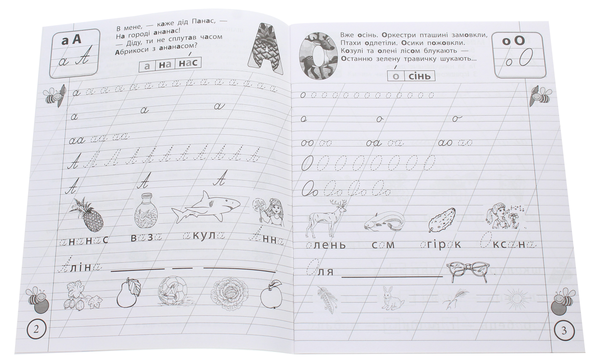 а А
а А
В мене, — каже дід Панас, —
На городі ананас!
— Діду, ти не сплутав часом
Абрикоси з ананасом?
а на нас
а а а а а а а а а а а а
а а а
аа аа аа
А А А А А А А А А А
А А А
ананас ваза акула Анна
Аліна
2
Вже осінь. Оркестри пташині замовкли,
Птахи одлетіли. Осики пожовкли.
Козулі та олені лісом блукають —
Останню зелену травичку шукають...
о О
о О
о сінь
о о о о о о о о о о о о
о о о
оо оо оо оа оа оа ао ао
О О О О О О О О О О
Оо Оо Оо Оо
олень сом огірок Оксана
Оля
3